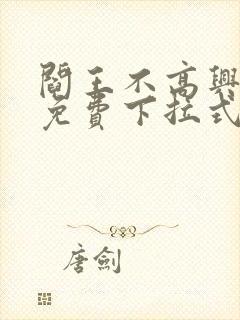 閻王不高興
免費下拉式
唐劍